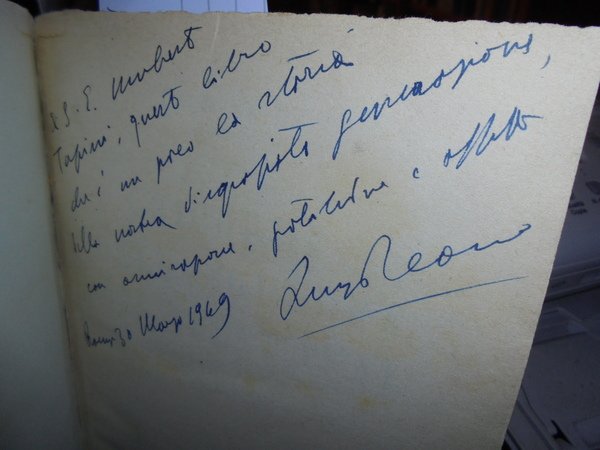 A S. E. Umberto
Tupini, questo libro
che è un poco la storia
della nostra disgraziata generazione,
con ammirazione, gratitudine e affetto
Roma 30 Marzo 1969